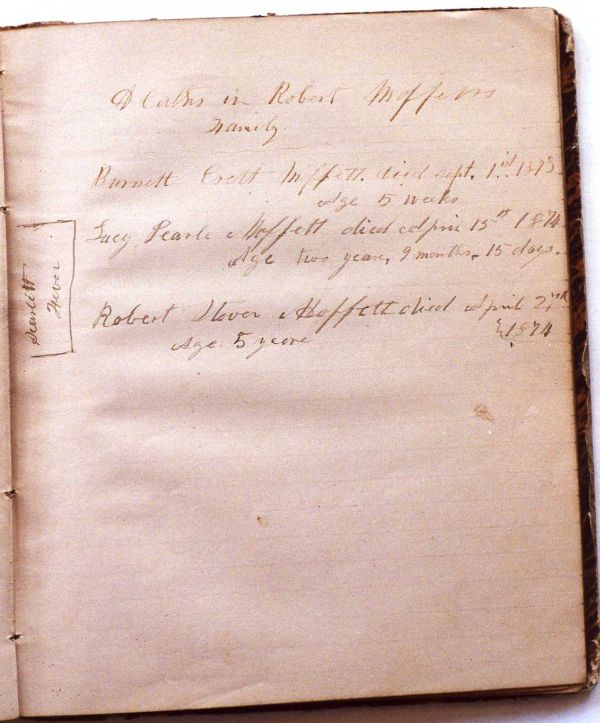 Deaths in Robert Moffetts
Family
Burnett Crett Moffett died sept. 1st 1873.
Age 5 weeks
Lucy Pearle Moffett died April 15th 1874
Age two years, 9 months, 15 days.
Scarlett
Fever
Robert Stever Moffett died April
1874
Age 5 years